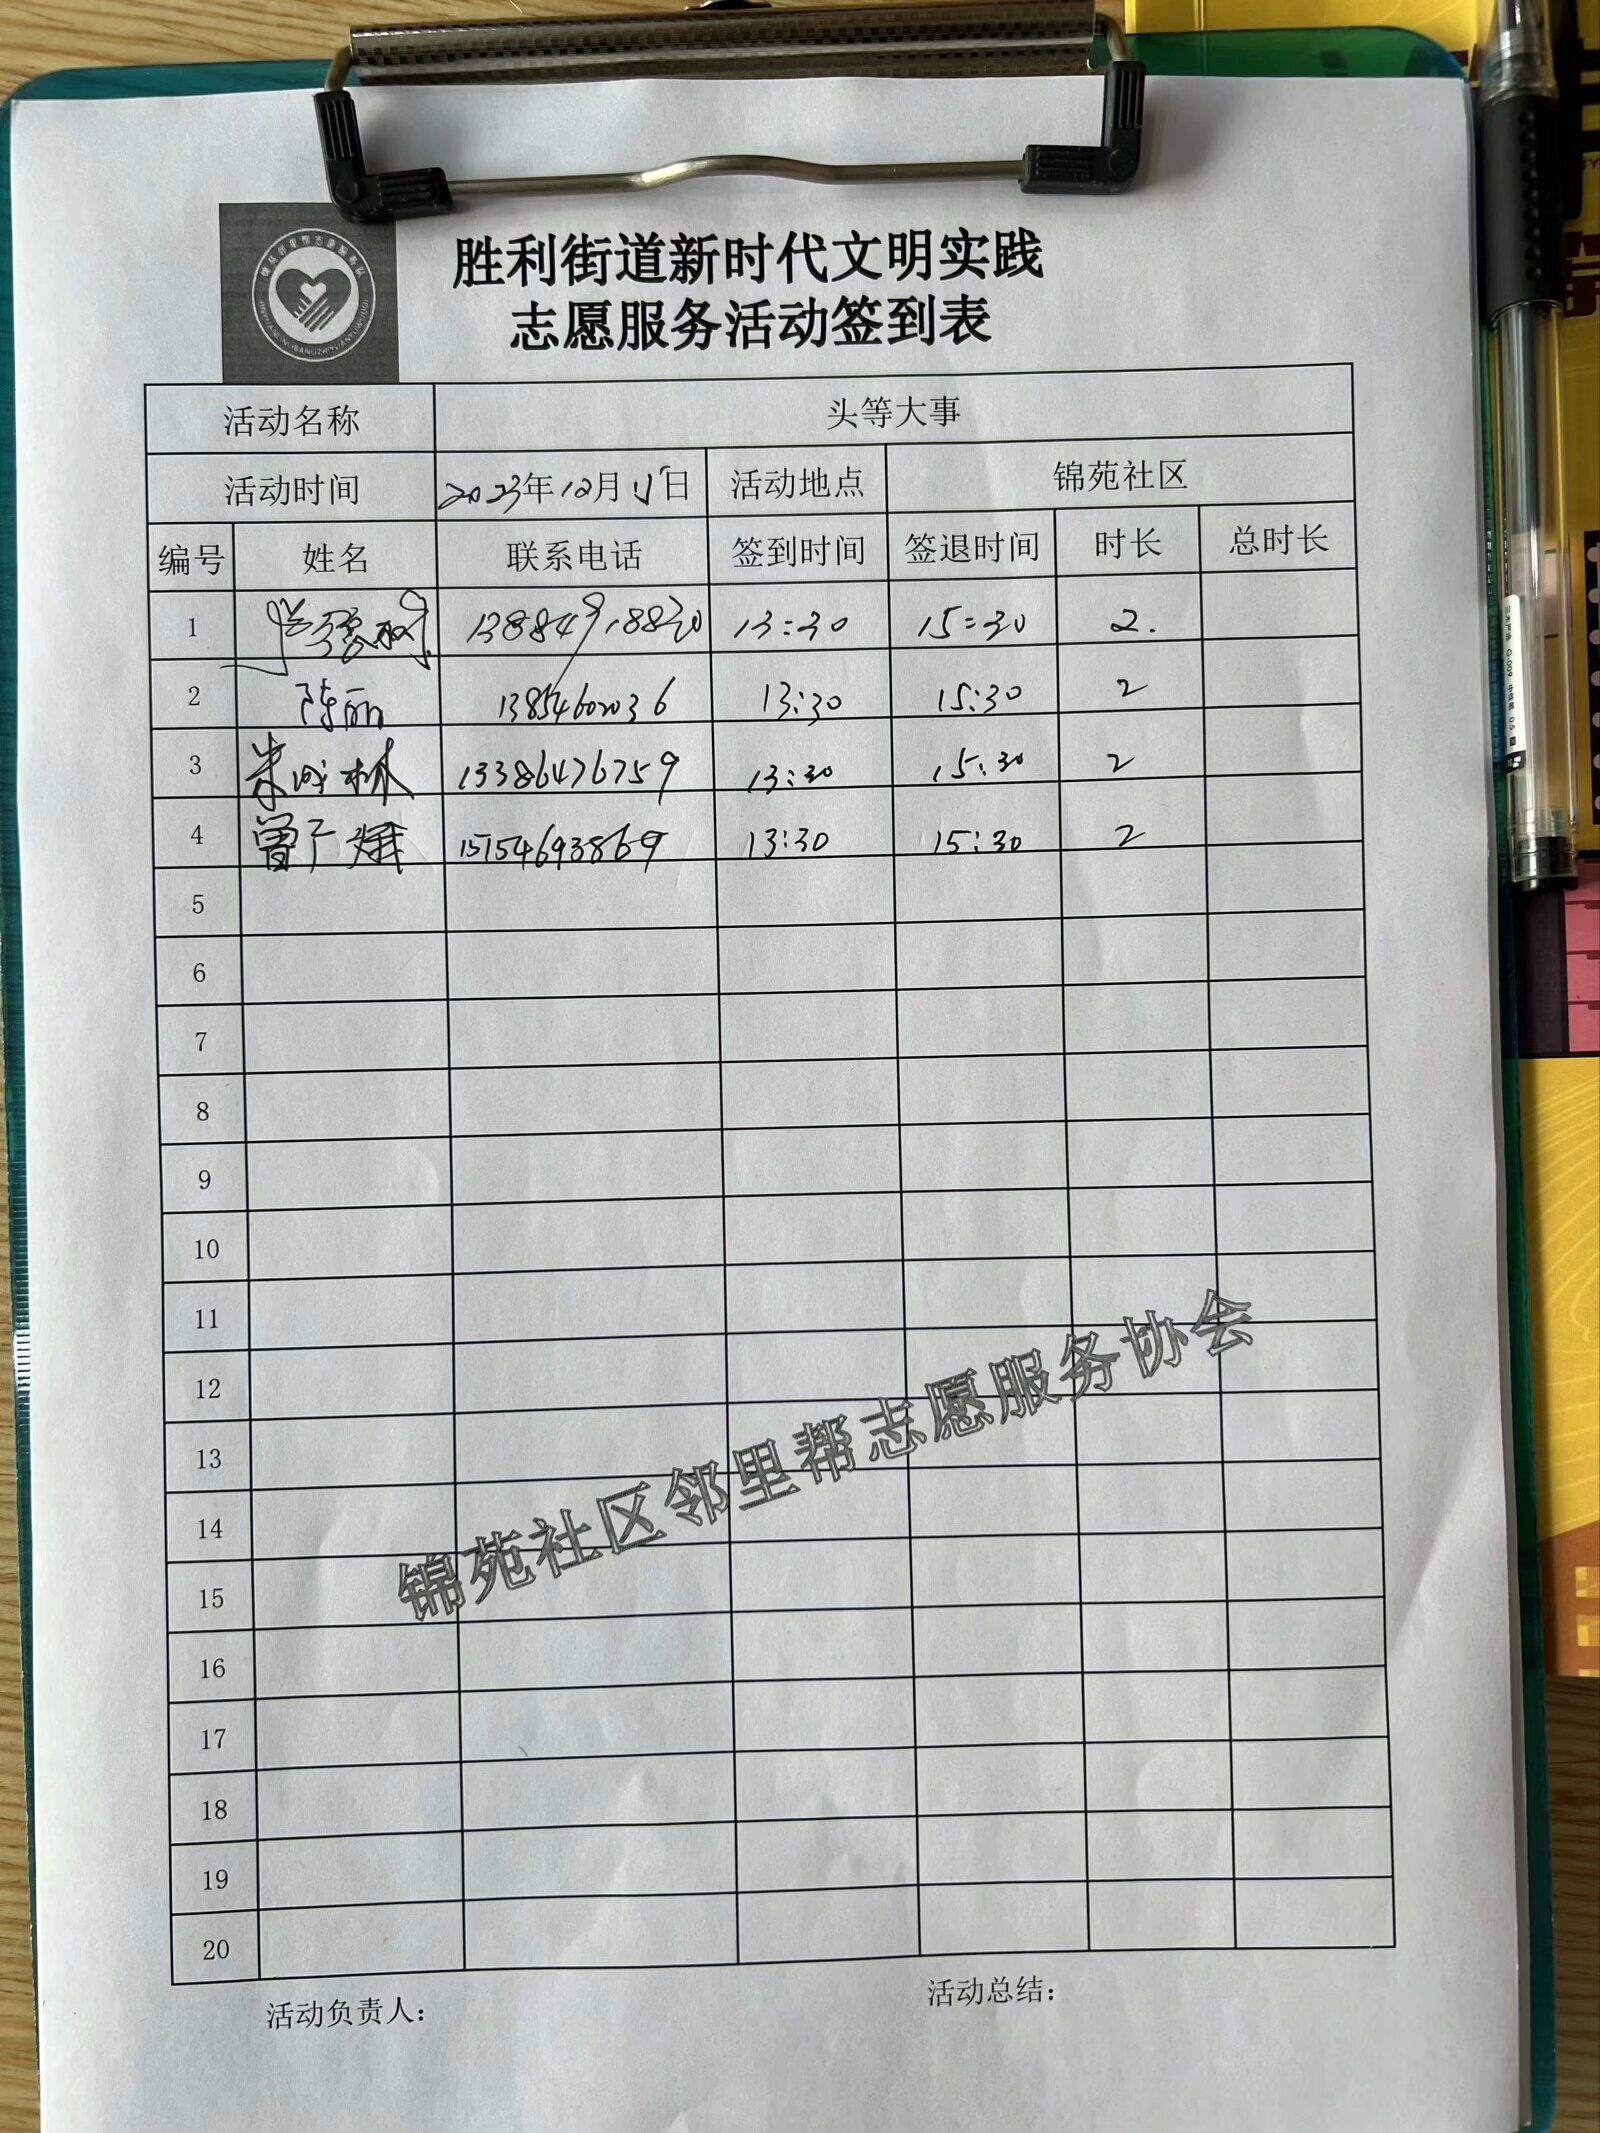 胜利街道新时代文明实践
志愿服务活动签到表
活动名称 头等大事
活动时间 2023年12月 日 活动地点 锦苑社区
编号 姓名 联系电话 签到时间 签退时间 时长 总时长
1 13:30 15:30 2.
2 陈丽 13854602036 13:30 15:30 2
3 13386476759 13:30 15:30 2
4 曾广娥 15154693869 13:30 15:30 2
5
6
7
8
9
10
11
12
13
14
15
16
17
18
19
20
锦苑社区邻里帮志愿服务协会
活动负责人： 活动总结：